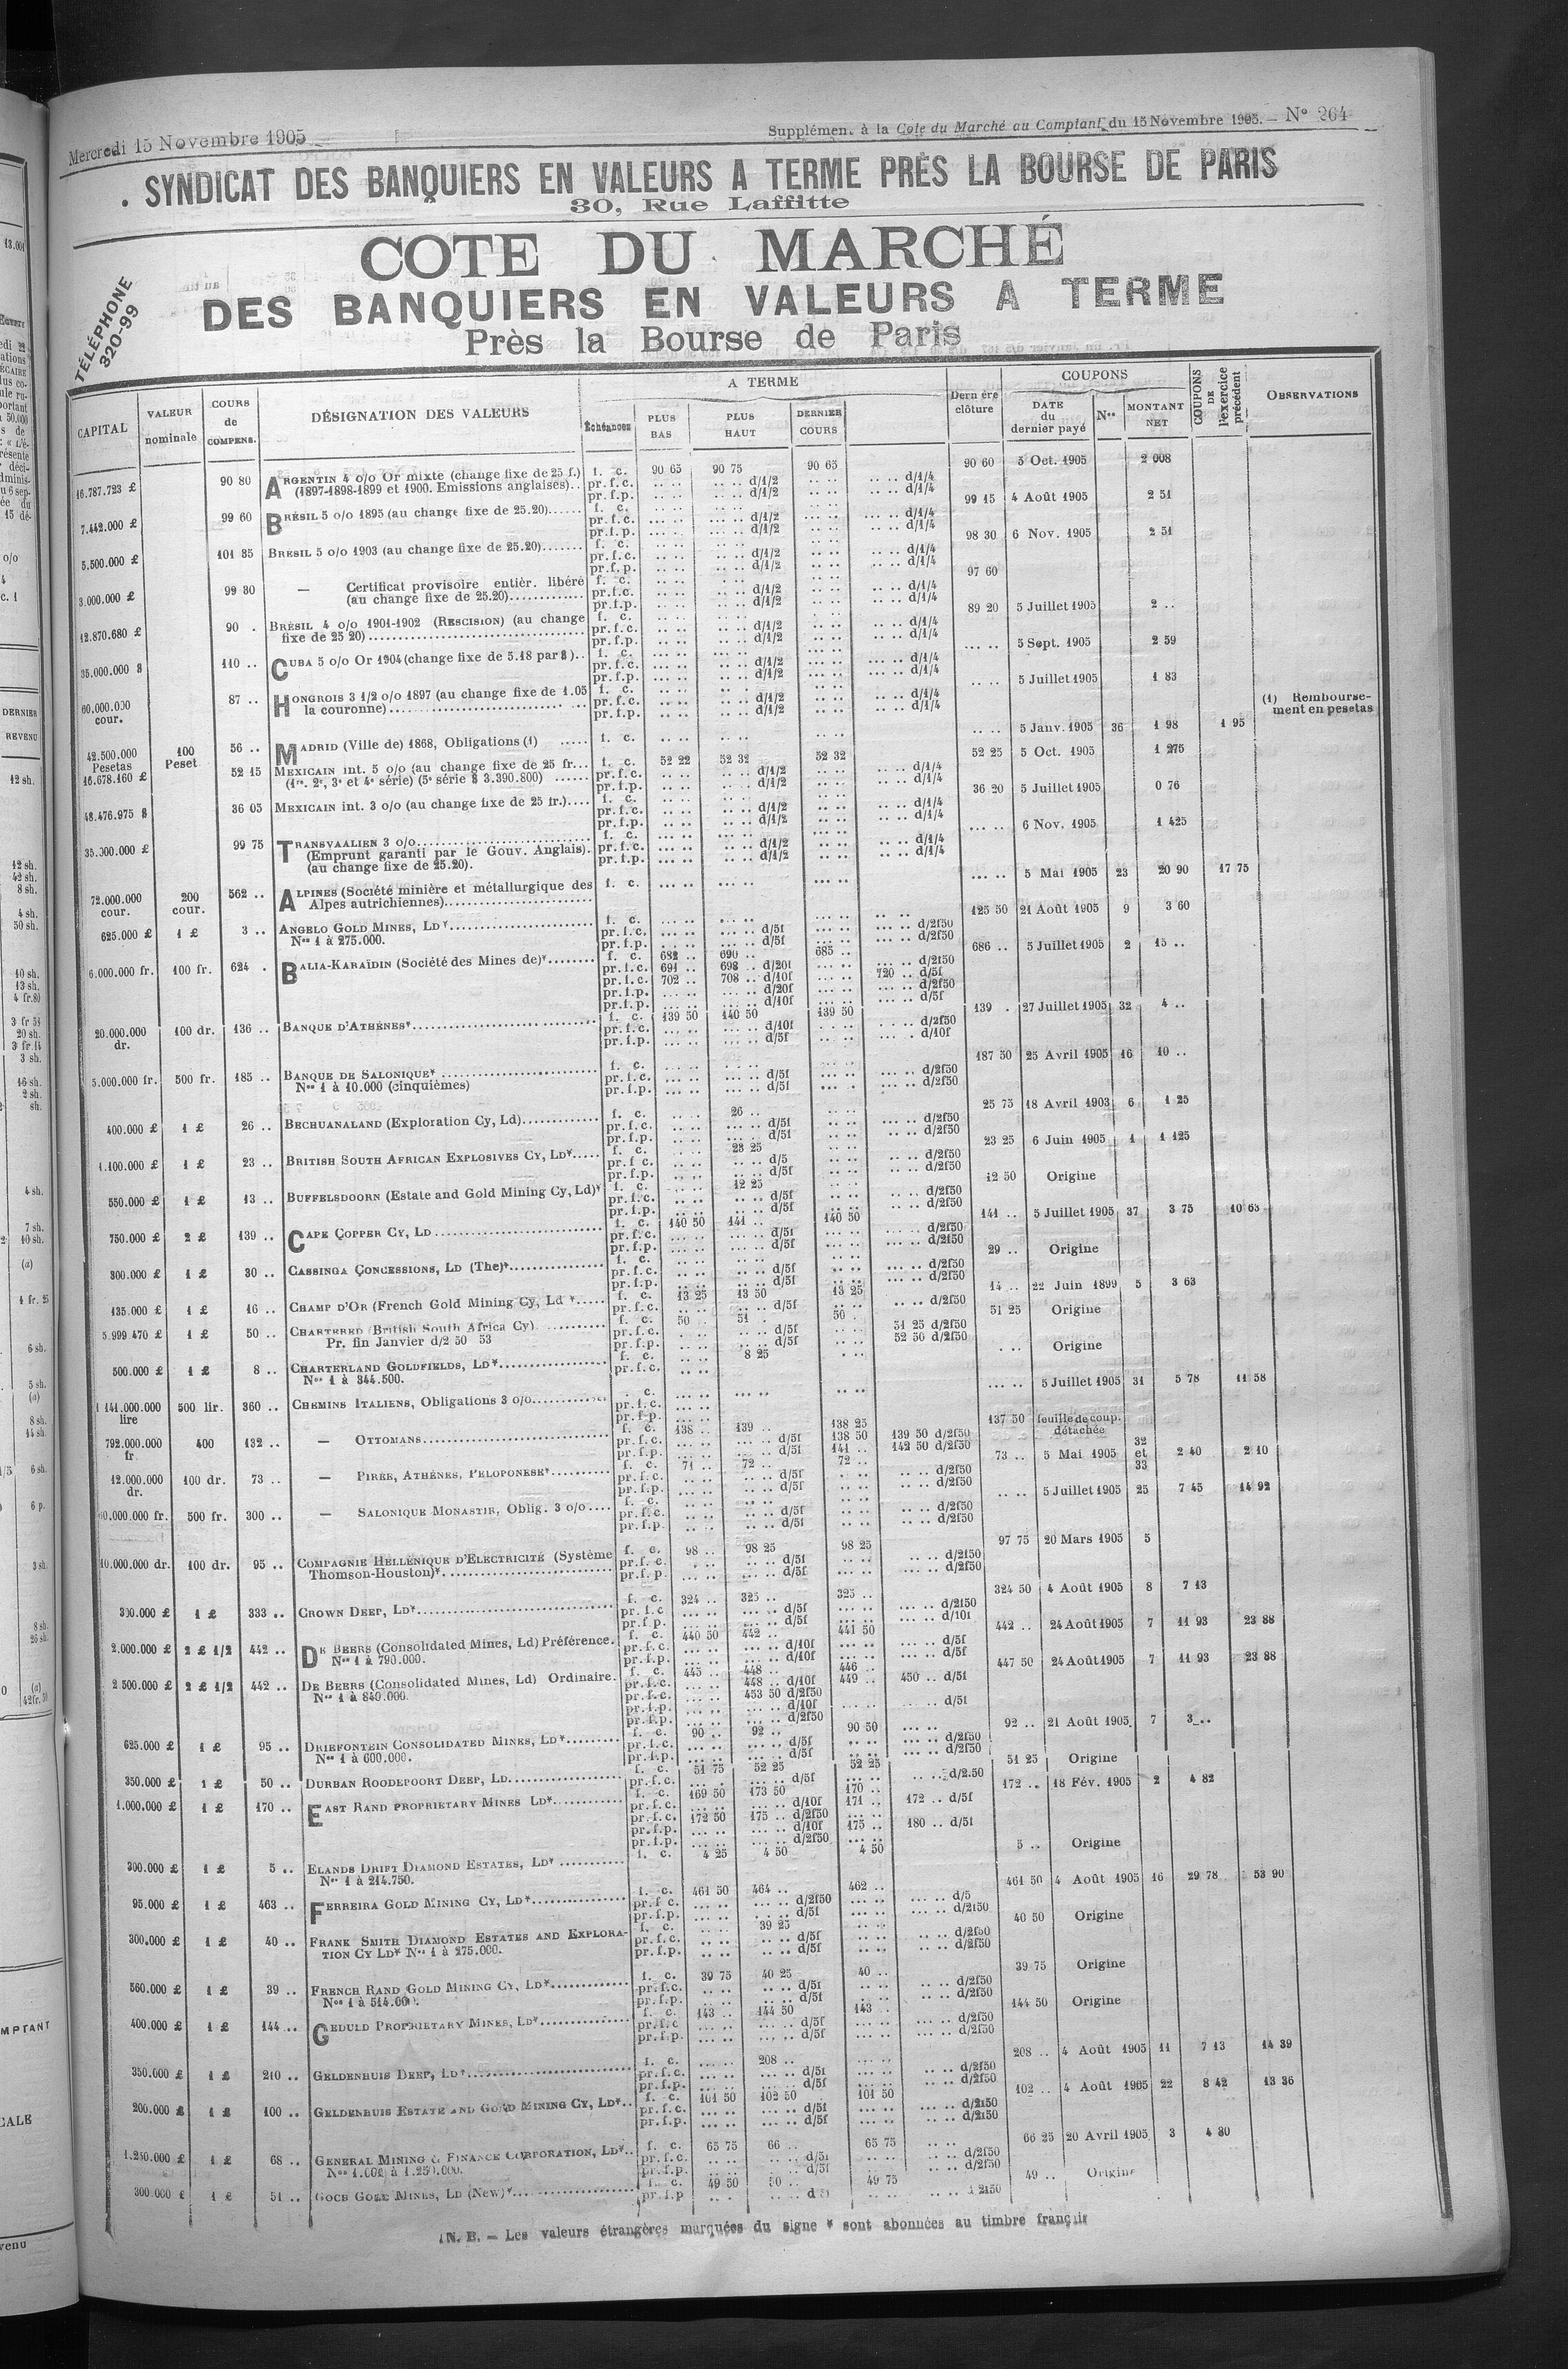 Mercredi 15 Novembre 1905
Supplément à la Cote du Marché au Comptant du 15 Novembre 1905. — N° 264
SYNDICAT DES BANQUIERS EN VALEURS A TERME PRÈS LA BOURSE DE PARIS
30, Rue Laffitte
TÉLÉPHONE
320-99
COTE DU MARCHÉ
DES BANQUIERS EN VALEURS A TERME
Près la Bourse de Paris
CAPITAL | VALEUR nominale | COURS de COMPENS. | DÉSIGNATION DES VALEURS | A TERME | Échéances | PLUS BAS | PLUS HAUT | DERNIER COURS | clôture | COUPONS | DATE du dernier payé | Nos | MONTANT NET | COUPONS DE l'exercice précédent | OBSERVATIONS
16.787.723 £ 90 80 ARGENTIN 4 o/o Or mixte (change fixe de 25 f.) f. c. 90 65 90 75 90 65 90 60 5 Oct. 1905 2 008
(1897-1898-1899 et 1900. Emissions anglaises).. pr.f.c. d/1/2 d/1/4
pr.f.p. d/1/2 d/1/4
7.442.000 £ 99 60 BRÉSIL 5 o/o 1895 (au change fixe de 25.20)...... f. c. 99 15 4 Août 1905 2 51
pr.f.c. d/1/2 d/1/4
pr.f.p. d/1/2 d/1/4
5.500.000 £ 101 85 BRÉSIL 5 o/o 1903 (au change fixe de 25.20)....... f. c. 98 30 6 Nov. 1905 2 51
pr.f.c. d/1/2 d/1/4
pr.f.p. d/1/2 d/1/4
3.000.000 £ 99 80 — Certificat provisoire entièr. libéré f. c. 97 60
(au change fixe de 25.20)............. pr.f.c. d/1/2 d/1/4
pr.f.p. d/1/2 d/1/4
12.870.680 £ 90 . BRÉSIL 4 o/o 1901-1902 (RESCISION) (au change f. c. 89 20 5 Juillet 1905 2 ..
fixe de 25 20) pr.f.c. d/1/2 d/1/4
pr.f.p. d/1/2 d/1/4
35.000.000 $ 110 .. CUBA 5 o/o Or 1904 (change fixe de 5.18 par $).. f. c. 5 Sept. 1905 2 59
pr.f.c. d/1/2 d/1/4
pr.f.p. d/1/2 d/1/4
60.000.000 cour. 87 .. HONGROIS 3 1/2 o/o 1897 (au change fixe de 1.05 f. c. 5 Juillet 1905 1 83
la couronne) pr.f.c. d/1/2 d/1/4
pr.f.p. d/1/2 d/1/4
42.500.000 Pesetas 100 Peset 56 .. MADRID (Ville de) 1868, Obligations (1) f. c. 5 Janv. 1905 36 1 98 1 95 (1) Remboursement en pesetas
16.678.160 £ 52 15 MEXICAIN int. 5 o/o (au change fixe de 25 fr... f. c. 52 22 52 32 52 32 52 25 5 Oct. 1905 1 275
(1re, 2e, 3e et 4e série) (5e série $ 3.390.800) pr.f.c. d/1/2 d/1/4
pr.f.p. d/1/2 d/1/4
48.476.975 $ 36 05 MEXICAIN int. 3 o/o (au change fixe de 25 fr.).... f. c. 36 20 5 Juillet 1905 0 76
pr.f.c. d/1/2 d/1/4
pr.f.p. d/1/2 d/1/4
35.000.000 £ 99 75 TRANSVAALIEN 3 o/o f. c. 6 Nov. 1905 1 425
(Emprunt garanti par le Gouv. Anglais). pr.f.c. d/1/2 d/1/4
(au change fixe de 25.20). pr.f.p. d/1/2 d/1/4
72.000.000 cour. 200 cour. 562 .. ALPINES (Société minière et métallurgique des f. c. 5 Mai 1905 23 20 90 17 75
Alpes autrichiennes)
625.000 £ 1 £ 3 .. ANGELO GOLD MINES, LD* f. c. 125 50 21 Août 1905 9 3 60
Nos 1 à 275.000. pr.f.c. d/5f d/2f50
pr.f.p. d/5f d/2f50
6.000.000 fr. 100 fr. 624 . BALIA-KARAÏDIN (Société des Mines de)* f. c. 682 .. 690 .. 685 .. 686 .. 5 Juillet 1905 2 15 ..
pr.f.c. 691 .. 698 .. d/20f d/2f50
pr.f.c. 702 .. 708 .. d/10f 720 .. d/5f
pr.f.p. d/20f d/2f50
pr.f.p. d/10f d/5f
20.000.000 dr. 100 dr. 136 .. BANQUE D'ATHÈNES* f. c. 139 50 140 50 139 50 139 . 27 Juillet 1905 32 4 ..
pr.f.c. d/10f d/2f50
pr.f.p. d/5f d/10f
5.000.000 fr. 500 fr. 185 .. BANQUE DE SALONIQUE* f. c. 187 50 25 Avril 1905 16 10 ..
Nos 1 à 10.000 (cinquièmes) pr.f.c. d/5f d/2f50
pr.f.p. d/5f d/2f50
400.000 £ 1 £ 26 .. BECHUANALAND (Exploration Cy, Ld) f. c. 26 .. 25 75 18 Avril 1903 6 1 25
pr.f.c. d/5f d/2f50
pr.f.p. d/5f d/2f50
1.100.000 £ 1 £ 23 .. BRITISH SOUTH AFRICAN EXPLOSIVES CY, LD* f. c. 23 25 23 25 6 Juin 1905 1 1 125
pr.f c. d/5 d/2f50
pr.f.p. d/5f d/2f50
550.000 £ 1 £ 13 .. BUFFELSDOORN (Estate and Gold Mining Cy, Ld)* f. c. 12 25 12 50 Origine
pr.f.c. d/5f d/2f50
pr.f.p. d/5f d/2f50
750.000 £ 2 £ 139 .. CAPE COPPER CY, LD f. c. 140 50 141 .. 140 50 141 .. 5 Juillet 1905 37 3 75 10 63
pr.f.c. d/5f d/2f50
pr.f.p. d/5f d/2f50
300.000 £ 1 £ 30 .. CASSINGA CONCESSIONS, LD (The)* f. c. 29 .. Origine
pr.f.c. d/5f d/2f50
pr.f.p. d/5f d/2f50
135.000 £ 1 £ 16 .. CHAMP D'OR (French Gold Mining Cy, Ld *..... f. c. 13 25 13 50 13 25 14 .. 22 Juin 1899 5 3 63
pr.f.c. d/5f d/2f50
5.999 470 £ 1 £ 50 .. CHARTERED (British South Africa Cy) f. c. 50 .. 51 . 50 . 51 25 Origine
Pr. fin Janvier d/2 50 53 pr.f.c. d/5f 51 25 d/2f50
pr.f.p. d/5f 52 50 d/2f50
500.000 £ 1 £ 8 .. CHARTERLAND GOLDFIELDS, LD* f. c. 8 25 Origine
Nos 1 à 344.500. pr.f.c.
1 141.000.000 lire 500 lir. 360 .. CHEMINS ITALIENS, Obligations 3 o/o c. 5 Juillet 1905 31 5 78 11 58
pr.f.c.
pr.f.p.
792.000.000 fr 400 132 .. — OTTOMANS f. c. 138 .. 139 .. 138 25 137 50 feuille de coup. détachée
pr.f.c. d/5f 138 50 139 50 d/2f50
pr.f.p. d/5f 141 .. 142 50 d/2f50
12.000.000 dr. 100 dr. 73 .. — PIRÉE, ATHÈNES, PÉLOPONÈSE* f. c. 71 .. 72 .. 72 .. 73 .. 5 Mai 1905 32 et 33 2 40 2 10
pr.f.c. d/5f d/2f50
pr.f.p. d/5f d/2f50
60.000.000 fr. 500 fr. 300 .. — SALONIQUE MONASTIR, Oblig. 3 o/o.... f. c. 5 Juillet 1905 25 7 45 14 92
pr.f.c. d/5f d/2f50
pr.f.p. d/5f d/2f50
10.000.000 dr. 100 dr. 95 .. COMPAGNIE HELLÉNIQUE D'ELECTRICITÉ (Système f. c. 98 .. 98 25 98 25 97 75 20 Mars 1905 5
Thomson-Houston)* pr.f.c. d/5f d/2f50
pr.f.p. d/5f d/2f50
300.000 £ 1 £ 333 .. CROWN DEEP, LD* f. c. 324 .. 325 .. 325 .. 324 50 4 Août 1905 8 7 13
pr.f.c d/5f d/2f50
pr.f.p. d/5f d/10f
2.000.000 £ 2 £ 1/2 442 .. DE BEERS (Consolidated Mines, Ld) Préférence. f. c. 440 50 442 .. 441 50 442 .. 24 Août 1905 7 11 93 23 88
Nos 1 à 790.000. pr.f.c. d/10f d/5f
pr.f.p. d/10f d/5f
2 500.000 £ 2 £ 1/2 442 .. DE BEERS (Consolidated Mines, Ld) Ordinaire. f. c. 445 .. 448 .. 446 .. 447 50 24 Août 1905 7 11 93 23 88
Nos 1 à 840.000. pr.f.c. 448 .. d/10f 449 .. 450 .. d/5f
pr.f.c. 453 50 d/2f50
pr.f.p. d/10f d/5f
pr.f.p. d/2f50
625.000 £ 1 £ 95 .. DRIEFONTEIN CONSOLIDATED MINES, LD* f. c. 90 .. 92 .. 90 50 92 .. 21 Août 1905 7 3 ..
Nos 1 à 600.000. pr.f.c. d/5f d/2f50
pr.f.p. d/5f d/2f50
350.000 £ 1 £ 50 .. DURBAN ROODEPOORT DEEP, LD f. c. 51 75 52 25 52 25 51 25 Origine
pr.f.c. d/5f d/2.50
1.000.000 £ 1 £ 170 .. EAST RAND PROPRIETARY MINES LD* f. c. 169 50 173 50 170 .. 172 .. 18 Fév. 1905 2 4 82
pr.f.c. d/10f 171 .. 172 .. d/5f
pr.f.c. 172 50 175 .. d/2f50
pr.f.p. d/10f 175 .. 180 .. d/5f
pr.f.p. d/2f50
300.000 £ 1 £ 5 .. ELANDS DRIFT DIAMOND ESTATES, LD* f. c. 4 25 4 50 4 50 5 .. Origine
Nos 1 à 214.750.
95.000 £ 1 £ 463 .. FERREIRA GOLD MINING CY, LD* f. c. 461 50 464 .. 462 .. 461 50 4 Août 1905 16 29 78 53 90
pr.f c. d/2f50 d/5
pr.f.p. d/5f d/2f50
300.000 £ 1 £ 40 .. FRANK SMITH DIAMOND ESTATES AND EXPLORA- f. c. 39 25 40 50 Origine
TION CY LD* Nos 1 à 275.000. pr.f.c. d/5f d/2f50
pr.f.p. d/5f d/2f50
560.000 £ 1 £ 39 .. FRENCH RAND GOLD MINING CY, LD* f. c. 39 75 40 25 40 .. 39 75 Origine
Nos 1 à 514.000. pr.f.c. d/5f d/2f50
pr.f.p. d/5f d/2f50
400.000 £ 1 £ 144 .. GEDULD PROPRIETARY MINES, LD* f. c. 143 .. 144 50 143 .. 144 50 Origine
pr.f.c d/5f d/2f50
pr.f.p. d/5f d/2f50
350.000 £ 1 £ 210 .. GELDENHUIS DEEP, LD* f. c. 208 .. 208 .. 4 Août 1905 11 7 13 14 39
pr.f.c. d/5f d/2f50
pr.f.p. d/5f d/2f50
200.000 £ 1 £ 100 .. GELDENHUIS ESTATE AND GOLD MINING CY, LD*.. f. c. 101 50 102 50 101 50 102 .. 4 Août 1905 22 8 42 13 36
pr.f.c. d/5f d/2f50
pr.f.p. d/5f d/2f50
1.250.000 £ 1 £ 68 .. GENERAL MINING & FINANCE CORPORATION, LD*.. f. c. 65 75 66 .. 65 75 66 25 20 Avril 1905 3 4 80
Nos 1.001 à 1.250.000. pr.f.c. d/5f d/2f50
pr.f.p. d/5f d/2f50
300.000 £ 1 £ 51 .. GOCH GOLD MINES, LD (New)* f. c. 49 50 50 .. 49 75 49 .. Origine
pr.f.p
N. B. — Les valeurs étrangères marquées du signe * sont abonnées au timbre français